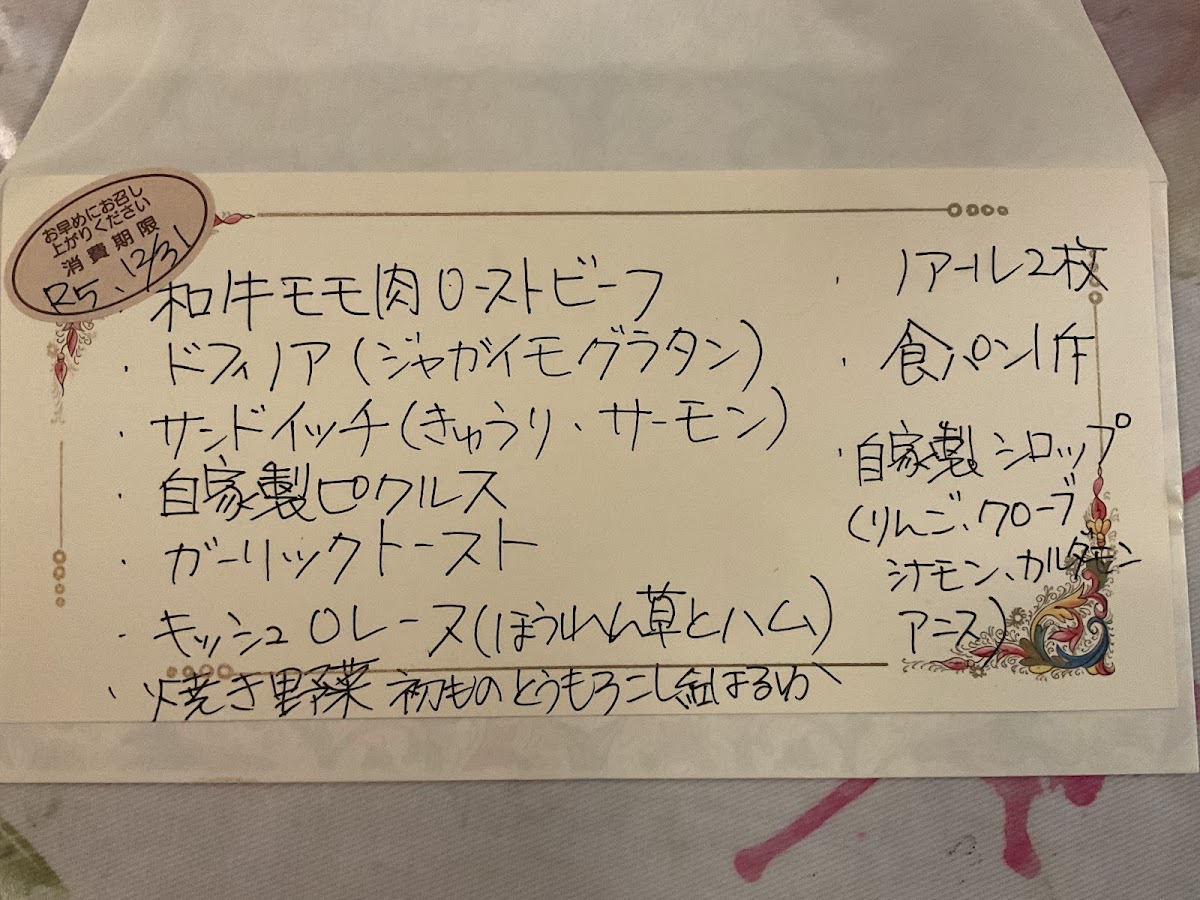 お早めにお召し
上がりください
消費期限
R5、12/31
・和牛モモ肉ローストビーフ
・ドフィノア(ジャガイモグラタン)
・サンドイッチ(きゅうり、サーモン)
・自家製ピクルス
・ガーリックトースト
・キッシュロレーヌ(ほうれん草とハム)
・焼き野菜 初ものとうもろこし紅はるか、
・ノアール2枚
・食パン1斤
・自家製シロップ
(りんご、クローブ
シナモン、カルダモン
アニス)